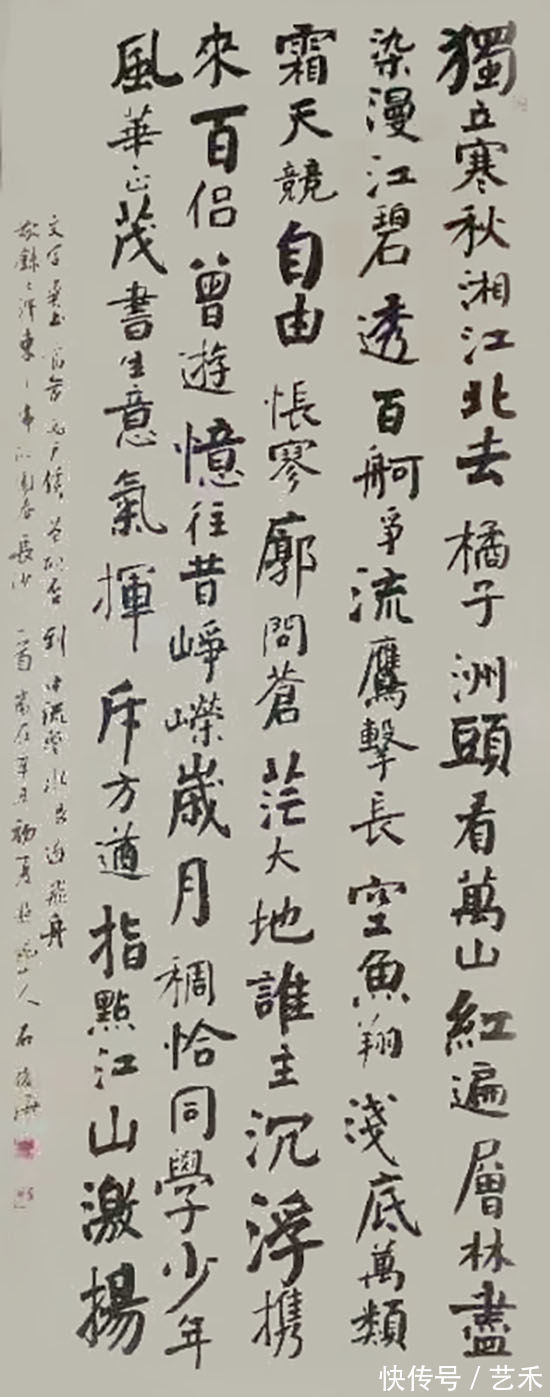 獨立寒秋湘江北去橘子洲頭看萬山紅遍層林盡
染漫江碧透百舸爭流鷹擊長空魚翔淺底萬類
霜天競自由悵寥廓問蒼茫大地誰主沉浮携
來百侶曾遊憶往昔崢嶸歲月稠恰同學少年
風華正茂書生意氣揮斥方遒指點江山激揚
文字糞土當年萬户侯曾記否到中流擊水浪遏飛舟
澤東主席沁園春長沙一首歲在辛丑初夏山人石
快传号／艺禾